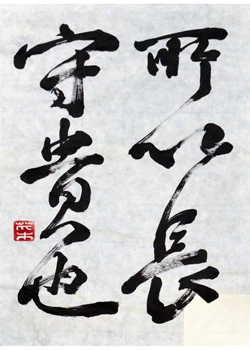 所以長
守貴也